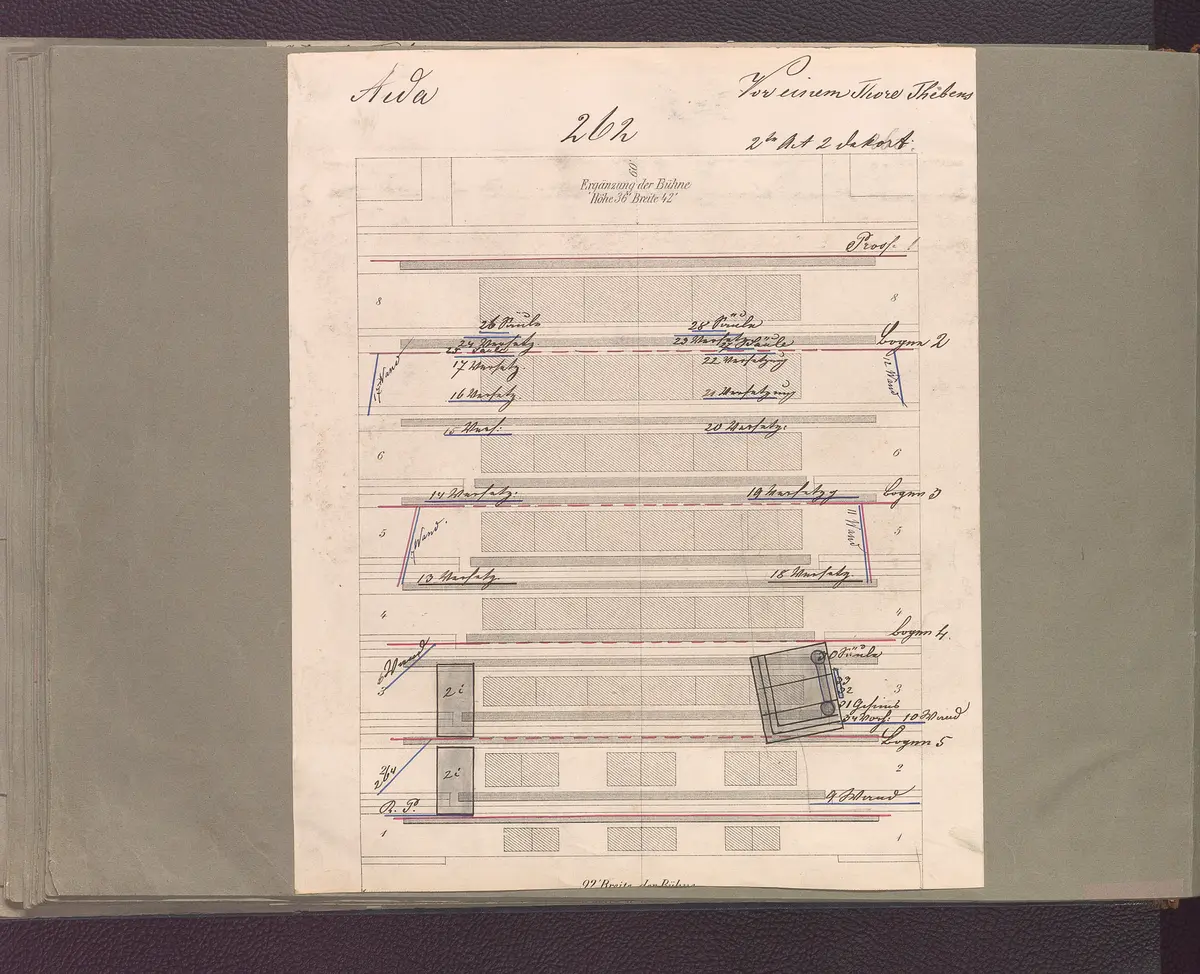 Aida
Vor einem Thore Thebens
262
2ter Act 2 dekort:
60'
Ergänzung der Bühne
Höhe 36' Breite 42'
Prosp. 1
8
8
26 Säule
28 Säule
24 Versetz
23 Versetz
27 Säule
Bogen 2
25 Säule
17 Versetz.
22 Versetzug
Wand
12 Wand
16 Versetz.
21 Versetzung
15 Vers:
20 Versetz:
6
6
14 Versetz:
19 Versetzg
Bogen 3
5
Wand
11 Wand
5
13 Versetz.
18 Versetz.
4
Bogen 4.
6 Wand
30 Säule
3
2 i
3
31 Gesims
Vers: 10 Wand
Bogen 5
2 i
2
264
R. P.
9 Wand
1
1
92' Breite der Bühne